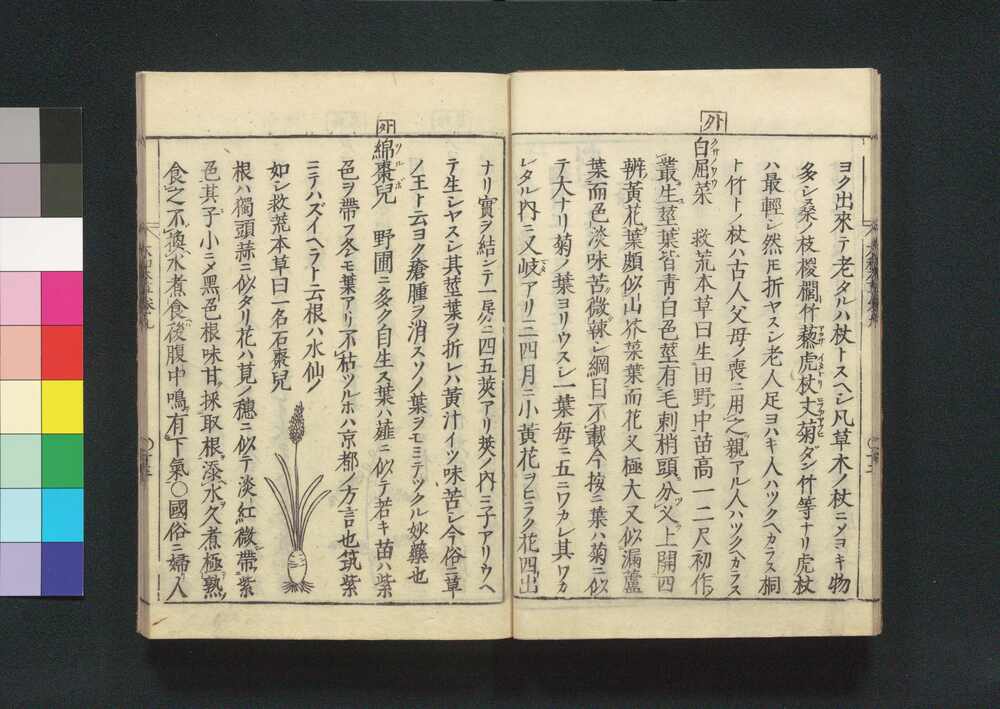 ヨク出來テ老タルハ杖トスヘシ凡草木ノ杖ニメヨキ物
多シ桑ノ枝椶櫚竹藜虎杖丈菊ダン竹等ナリ虎杖
ハ最輕シ然𪜈折ヤスシ老人足ヨハキ人ハツクヘカラス桐
ト竹トノ杖ハ古人父母ノ喪ニ用之親アル人ハツクヘカラス
外
白屈菜 救荒本草曰生田野中苗高一二尺初作
クサノワウ
叢生莖葉皆青白色莖有毛刺梢頭分乂上開四
瓣黃花葉頗似山芥菜葉而花又極大又似漏蘆
葉而色淡味苦微辣シ綱目不載今按ニ葉ハ菊ニ似
テ大ナリ菊ノ葉ヨリウスシ一葉每ニ五ニワカレ其ワカ
レタル內ニ又岐アリ三四月ニ小黃花ヲヒラク花四出
ナリ實ヲ結シテ一房ニ四五莢アリ莢ノ內ニ子アリウヘ
テ生シヤスシ其莖葉ヲ折レハ黃汁イツ味苦シ今俗ニ草
ノ王ト云ヨク瘡腫ヲ消スソノ葉ヲモミテツクル妙藥也
外
綿棗兒 野圃ニ多ク自生ス葉ハ薤ニ似テ若キ苗ハ紫
ツルボ
色ヲ帶フ冬モ葉アリ不枯ツルホハ京都ノ方言也筑紫
ニテハズイヘラト云根ハ水仙ノ
如シ救荒本草曰一名石棗兒
根ハ獨頭蒜ニ似タリ花ハ莧ノ穗ニ似テ淡紅微帶紫
色其子小ニメ黑色根味甘採取根添水久煮極熟
食之不換水煮食後腹中鳴有下氣○國俗ニ婦人